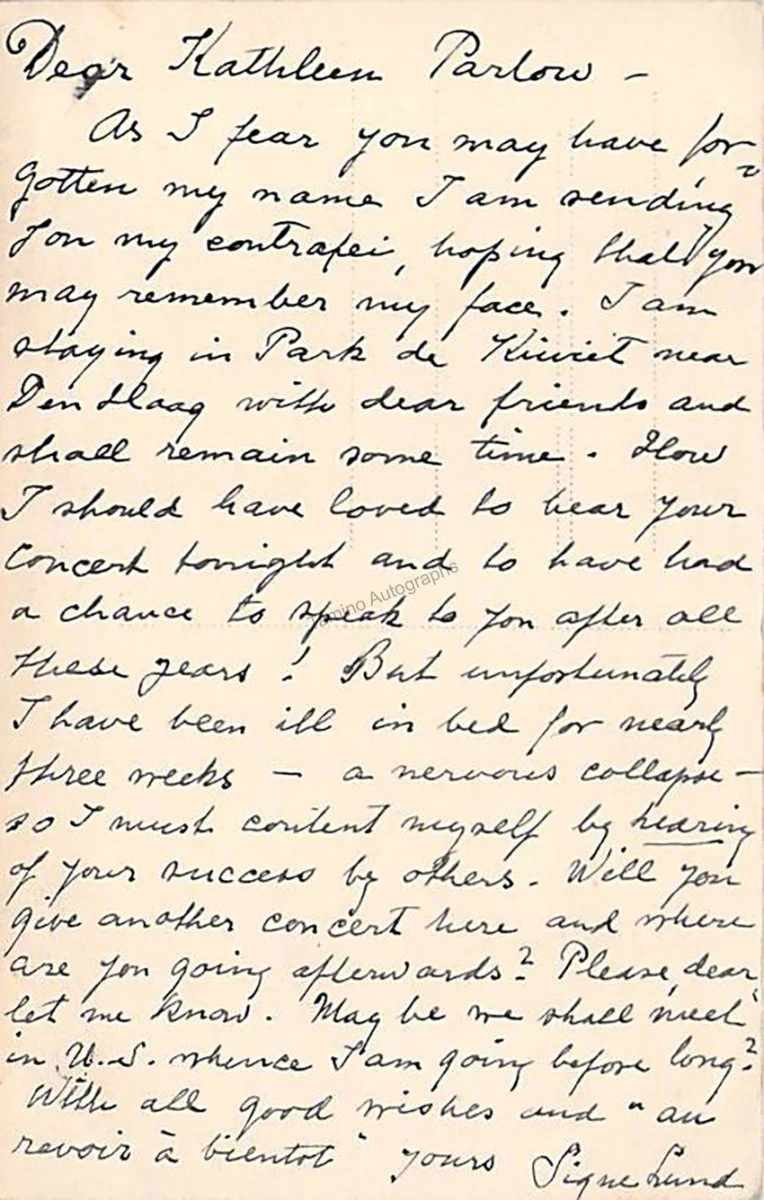 Dear Kathleen Parlow –
As I fear you may have for=
gotten my name I am sending
you my contrafei, hoping that you
may remember my face. I am
staying in Park de Kieviet near
Den Haag with dear friends and
shall remain some time. How
I should have loved to hear your
concert tonight and to have had
a chance to speak to you after all
these years! But unfortunately
I have been ill in bed for nearly
three weeks – a nervous collapse –
so I must content myself by hearing
of your success by others. Will you
give another concert here and where
are you going afterwards? Please, dear,
let me know. May be we shall meet
in U.S. whence I am going before long?
With all good wishes and "au
revoir à bientot" yours Signe Lund
Tamino Autographs